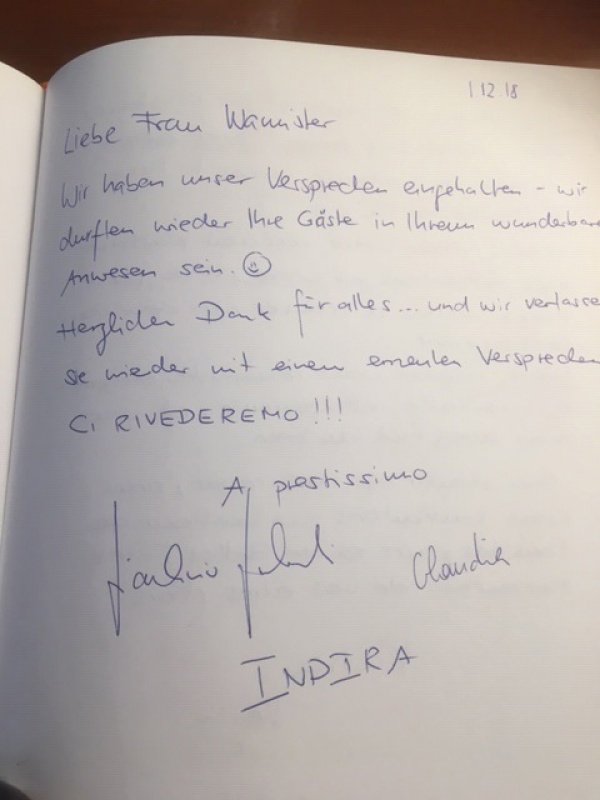 1 12.18
Liebe Frau Wannister
Wir haben unser Versprechen eingehalten - wir
durften wieder Ihre Gäste in Ihrem wunderbare
Anwesen sein. ☺
Herzlichen Dank für alles... und wir verlasse
sie wieder mit einem erneuten Versprechen
CI RIVEDEREMO !!!
A prestissimo
Claudia
INDIRA